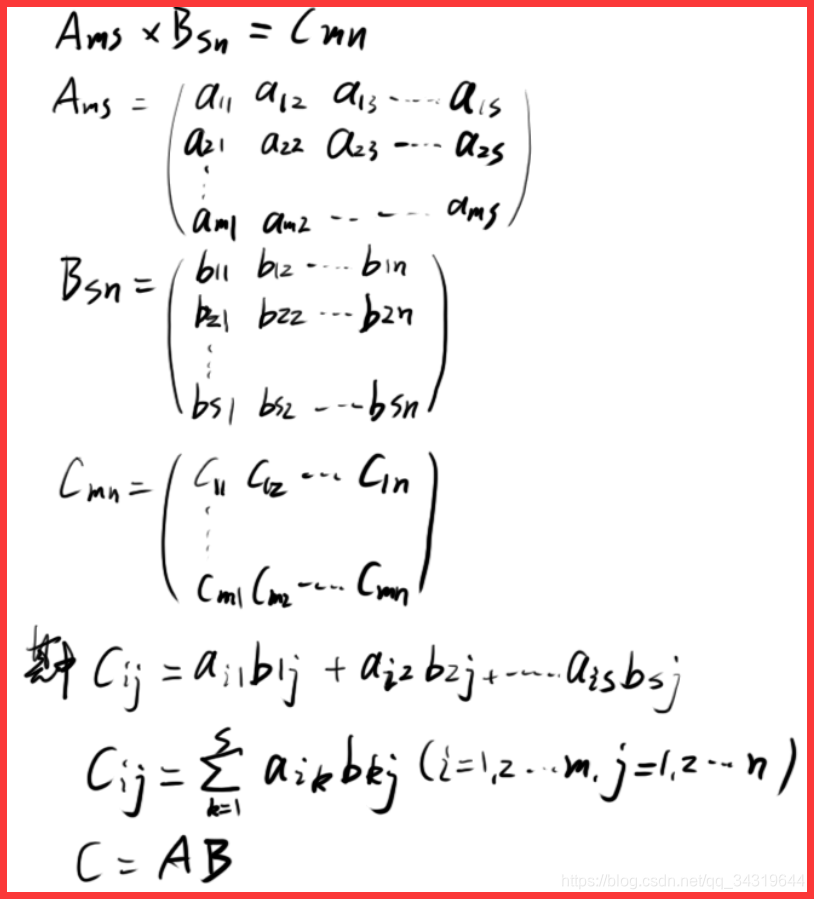 Ams × Bsn = Cmn
Ams = ( a11 a12 a13 ----- a1s
a21 a22 a23 ----- a2s
⋮
am1 am2 -- - --- ams )
Bsn = ( b11 b12 ----- b1n
b21 b22 --- b2n
⋮
bs1 bs2 ----- bsn )
Cmn = ( C11 C12 ---- C1n
⋮
Cm1 Cm2 ----- Cmn )
其中 Cij = ai1b1j + ai2b2j + ----- aisbsj
Cij = ∑ˢₖ₌₁ aikbkj (i=1,2---m, j=1,2--n)
C = AB
https://blog.csdn.net/qq_34319644